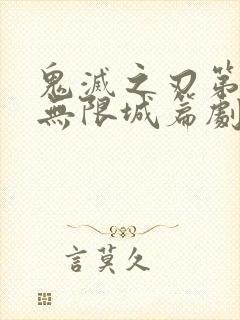 鬼滅之刃第
無限城篇劇
言莫久